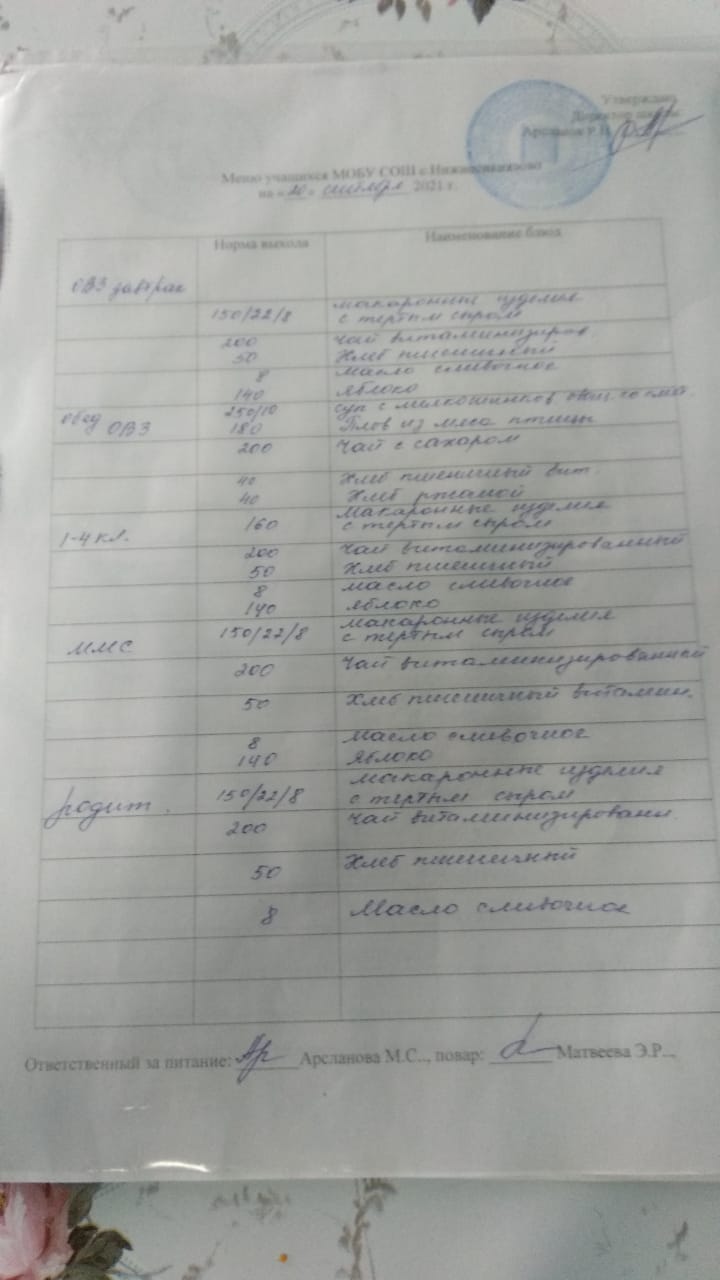 Утверждаю
Директор школы
Арсланов Р.
Меню учащихся МОБУ СОШ с.
на «20» сентября 2021 г.
Норма выхода Наименование блюд
ОВЗ завтрак
150/22/8 макаронные изделия
с тертым сыром
200 Чай витаминизиров.
50 Хлеб пшеничный
8 масло сливочное
140 яблоко
Обед ОВЗ 250/10 суп с
180 Плов из мяса птицы
200 Чай с сахаром
40 Хлеб пшеничный вит.
40 Хлеб ржаной
1-4 кл. 160 Макаронные изделия
с тертым сыром
200 Чай витаминизированный
50 Хлеб пшеничный
8 масло сливочное
140 яблоко
ММС 150/22/8 макаронные изделия
с тертым сыром
200 Чай витаминизированный
50 Хлеб пшеничный витамин.
8 Масло сливочное
140 яблоко
родит. 150/22/8 макаронные изделия
с тертым сыром
200 Чай витаминизированн.
50 Хлеб пшеничный
8 Масло сливочное
Ответственный за питание: Арсланова М.С.., повар: Матвеева Э.Р..,